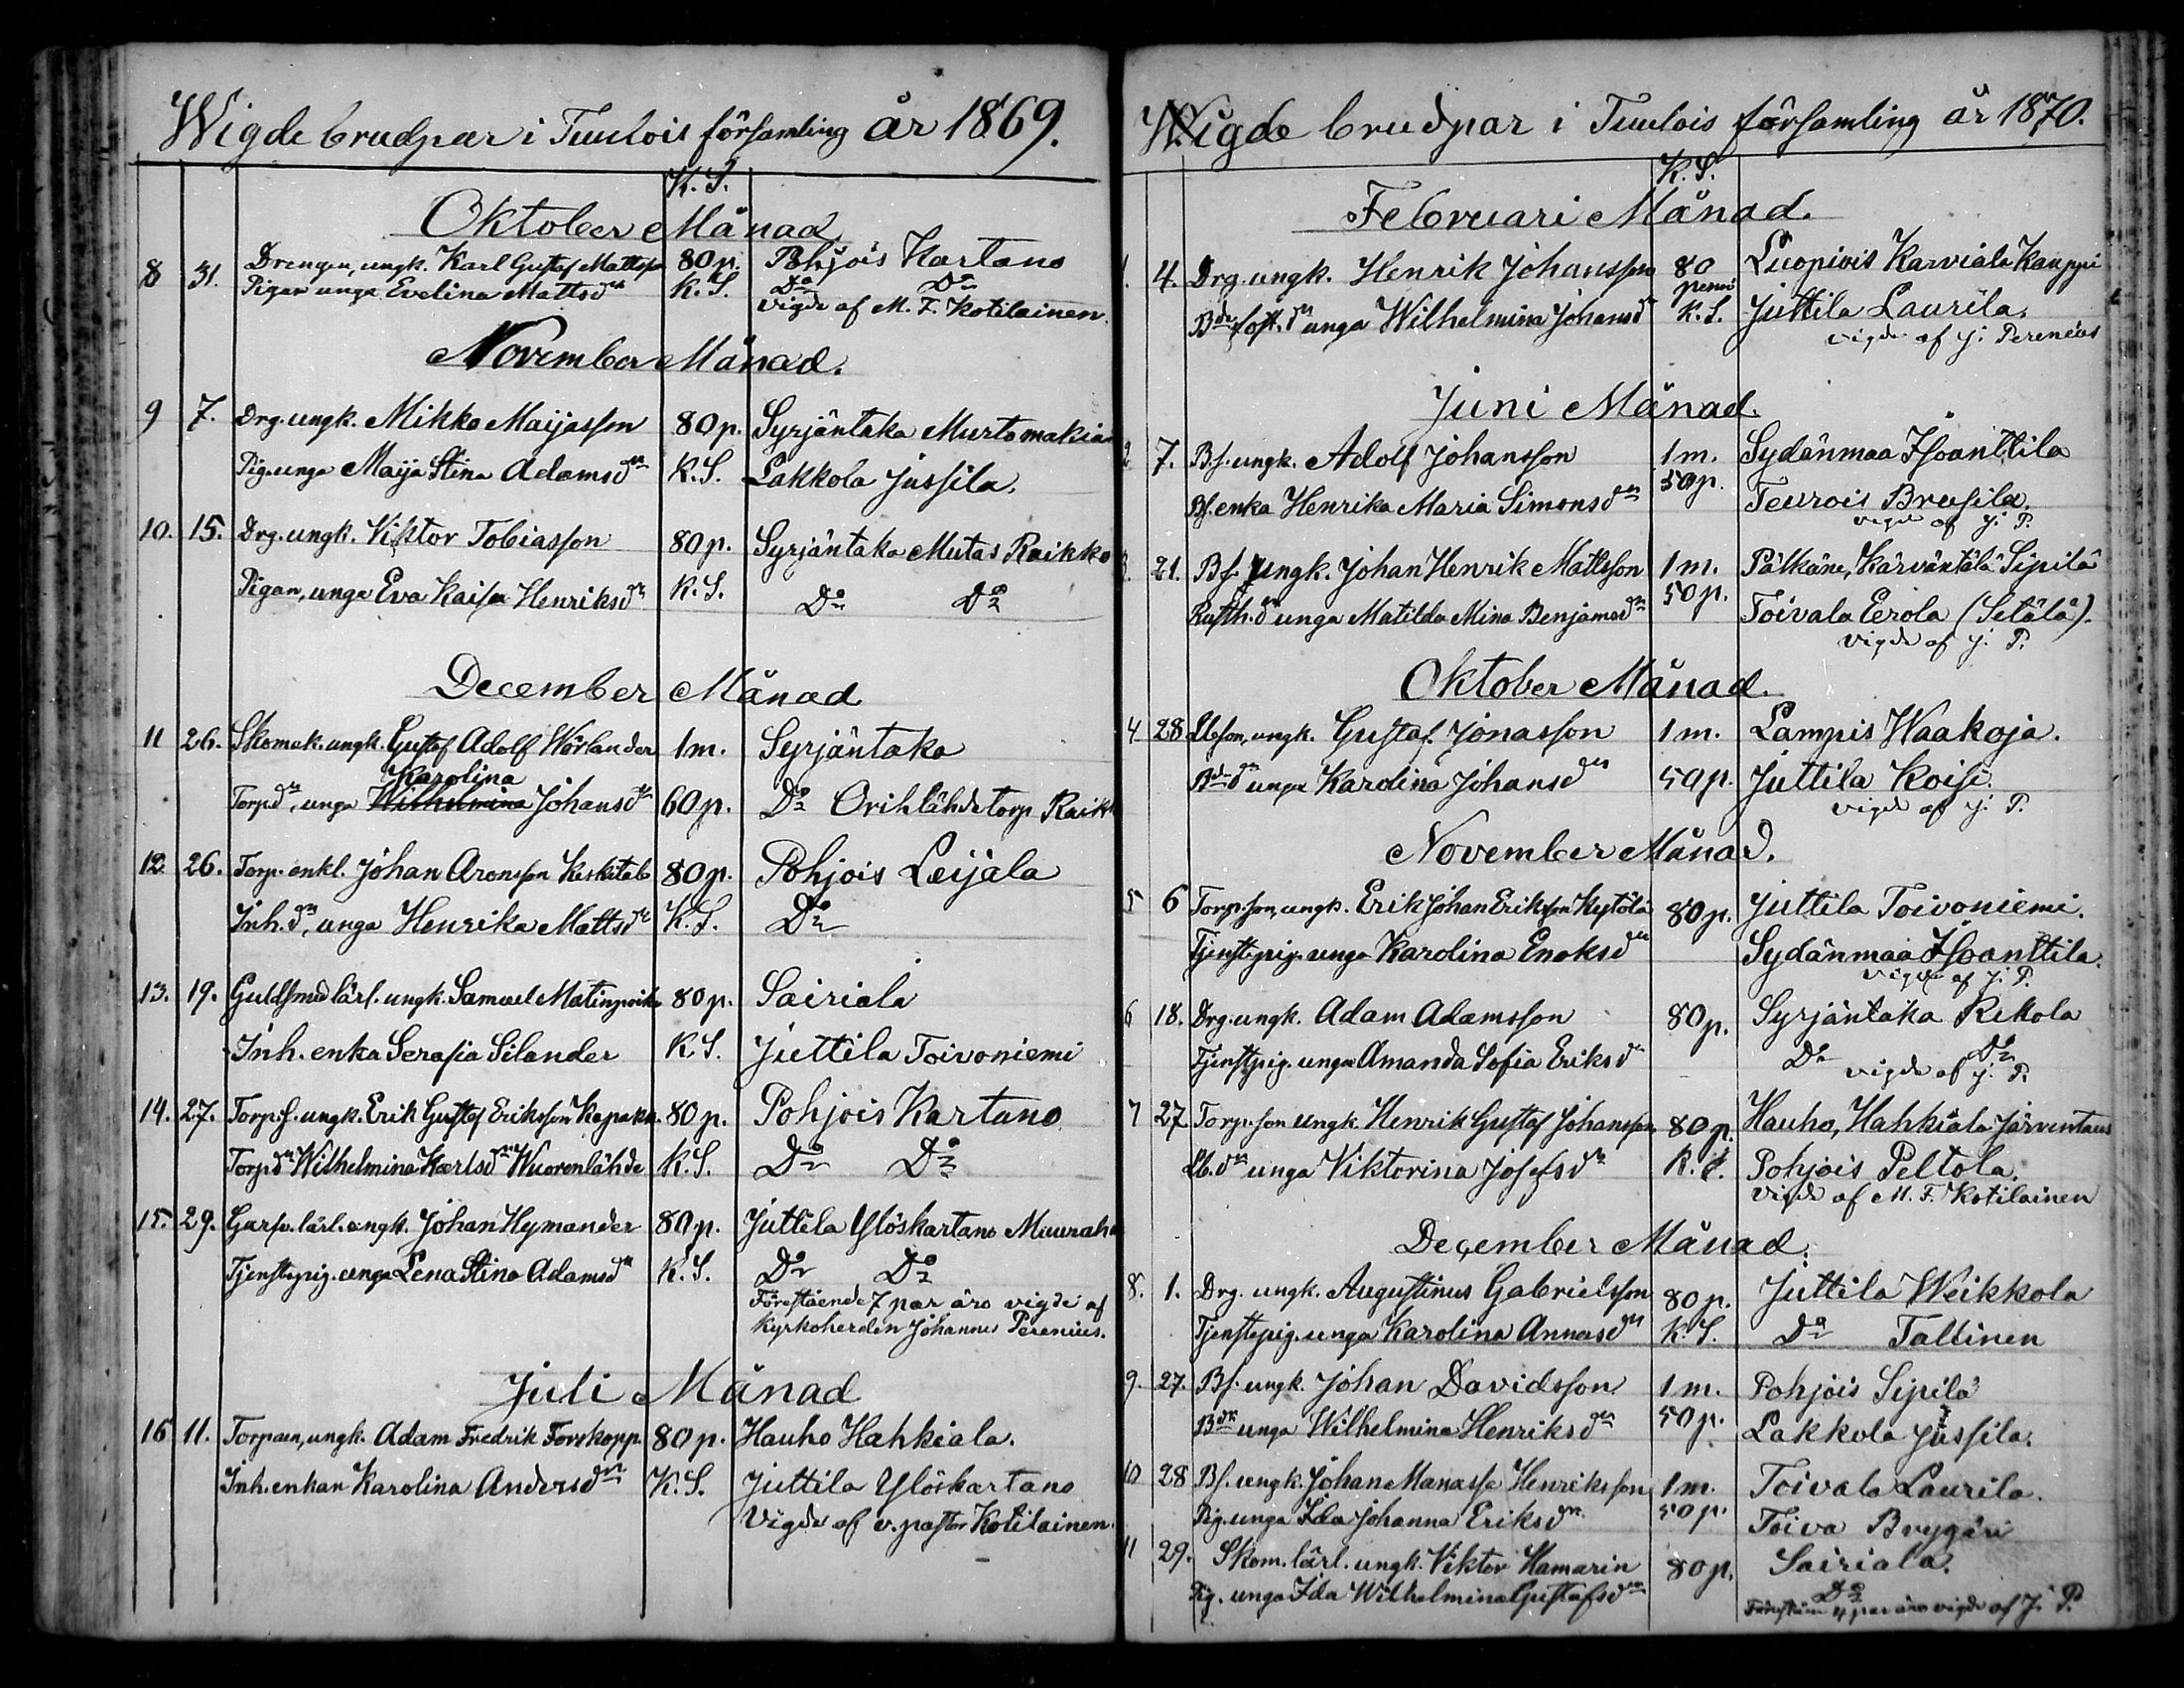 Wigde brudpar i Tuulois församling år 1869.
K. S.
Oktober Månad
8 31. Drengen, ungk. Karl Gustaf Mattsson 80 p. Pohjois Kartano
Pigan unga Evelina Mattsdr K. S. Do Do
vigde af M. F. Kotilainen.
November Månad.
9 7. Drg. ungk. Mikko Maijasson 80 p. Syrjäntaka Murtomäkiä
Pig. unga Maija Stina Adamsdr K. S. Lakkola Jussila.
10. 15. Drg. ungk. Viktor Tobiasson 80 p. Syrjäntaka Mutas Raikko
Pigan, unga Eva Kaisa Henriksdr K. S. Do Do
December Månad
11 26. Skomak. ungk. Gustaf Adolf Wörlander 1 m. Syrjäntaka
Karolina
Torp.dr, unga Wilhelmina Johansdr 60 p. Do Orihlähde torp Raikk
12 26. Torp. enkl. Johan Aronsson Keskitalo 80 p. Pohjois Leijala
Inh. dr, unga Henrika Mattsdr K. S. Do
13. 19. Guldsmed lärl. ungk. Samuel Matinpoika 80 p. Sairiala
Inh. enka Serafia Silander K. S. Juttila Toivoniemi
14. 27. Torp. s. ungk. Erik Gustaf Eriksson Kapakk. 80 p. Pohjois Kartano
Torp dr Wilhelmina Karlsdr Wuorenlähde K. S. Do Do
15. 29. Garfv. lärl. ungk. Johan Hymander 80 p. Juttila Ylöskartano Muuraha
Tjenstepig. unga Lena Stina Adamsdr K. S. Do Do
Förestående 7 par äro vigde af
Kyrkoherden Johannes Perenius.
Juli Månad
16 11. Torparn, ungk. Adam Fredrik Forskopp. 80 p. Hauho Hahkiala.
Inh. enkan Karolina Andersdr K. S. Juttila Ylöskartano
Vigde af v. pastor Kotilainen.
Wigde brudpar i Tuulois församling år 1870.
K. S.
Februari Månad.
1. 4. Drg. ungk. Henrik Johansson 80 penni Luopiois Karviala Kauppi
Bde fost. dr unga Wilhelmina Johansdr K. S. Juttila Laurila.
vigde af J. Perenius
Juni Månad.
2 7. Bs. ungk. Adolf Johansson 1 m. Sydänmaa Isoanttila
Bs. enka Henrika Maria Simonsdr 50 p. Teurois Brusila.
vigde af J. P.
3. 21. Bs. ungk. Johan Henrik Mattsson 1 m. Pälkäne, Kärväntälä Sipilä
Rusth. dr unga Matilda Mina Benjamsdr 50 p. Toivala Eerola (Setälä).
vigde af J. P.
Oktober Månad.
4 28 Lbson, ungk. Gustaf Jonasson 1 m. Lampis Waakoja.
Bde dr unga Karolina Johansdr 50 p. Juttila Koisi.
vigde af J. P.
November Månad.
5 6 Torp. son, ungk. Erik Johan Eriksson Kytölä 80 p. Juttila Toivoniemi.
Tjenstepig. unga Karolina Enoksdr Sydänmaa Isoanttila.
vigde af J. P.
6 18. Drg. ungk. Adam Adamsson 80 p. Syrjäntaka Rekola
Tjenstepig. unga Amanda Sofia Eriksdr Do Do
vigde af J. P.
7 27 Torp. son ungk. Henrik Gustaf Johansson 80 p. Hauho, Hahkiala Järventaus
Lb. dr unga Viktorina Josefsdr K. S. Pohjois Peltola.
vigde af M. F. Kotilainen
December Månad.
8. 1. Drg. ungk. Augustinus Gabrielsson 80 p. Juttila Weikkola
Tjenstepig. unga Karolina Annasdr K. S. Do Taltinen
9. 27. Bs. ungk. Johan Davidsson 1 m. Pohjois Sipilä
Bdr unga Wilhelmina Henriksdr 50 p. Lakkola Jussila.
10 28 Bs. ungk. Johan Manasse Henriksson 1 m. Toivala Laurila.
Pig. unga Ida Johanna Eriksdr 50 p. Toiva Brygäri
11 29. Skom. lärl. ungk. Viktor Hamarin 80 p. Sairiala.
Pig. unga Ida Wilhelmina Gustafsdr Do
4 par äro vigde af J. P.